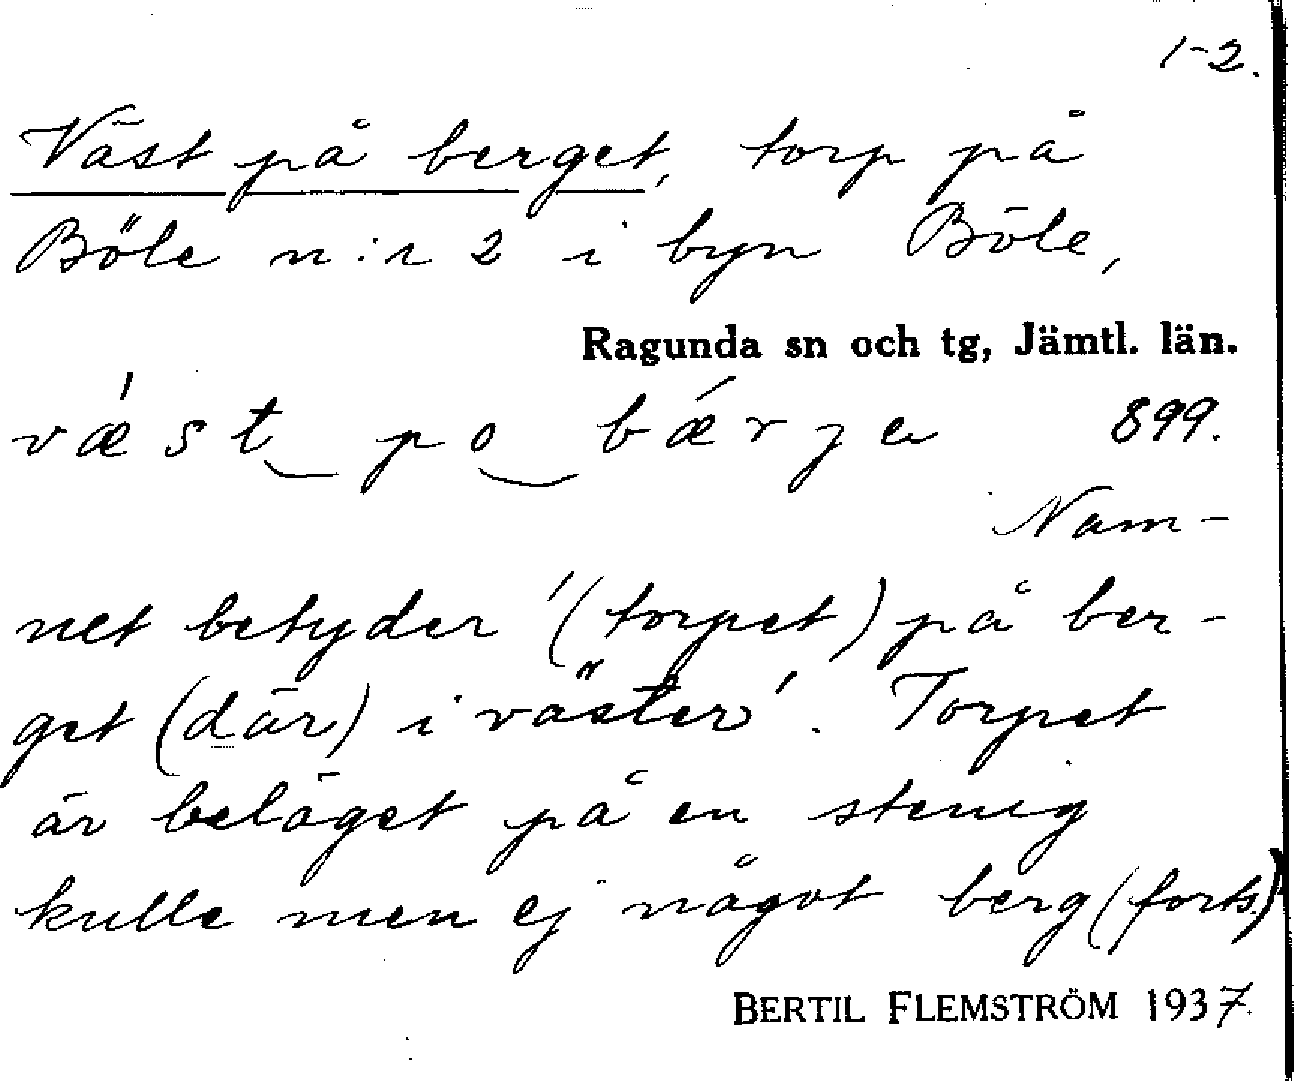 1-2.
Väst på berget, torp på
Böle n:r 2 i byn Böle,
Ragunda sn och tg, Jämtl. län.
vǽst‿po‿bǽrʒa 899.
Nam-
net betyder '(torpet) på ber-
get (där) i väster'. Torpet
är beläget på en stenig
kulle men ej något berg (forts.)
BERTIL FLEMSTRÖM 1937